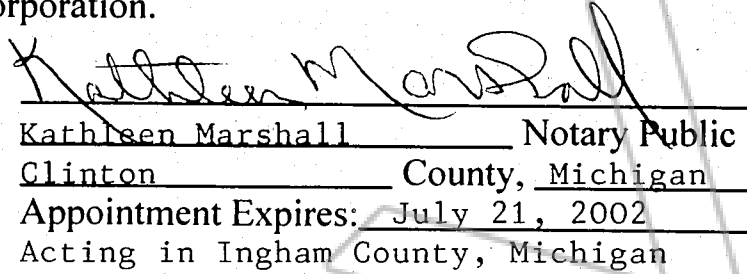 orporation.
Kathleen Marshall
Kathleen Marshall Notary Public
Clinton County, Michigan
Appointment Expires: July 21, 2002
Acting in Ingham County, Michigan